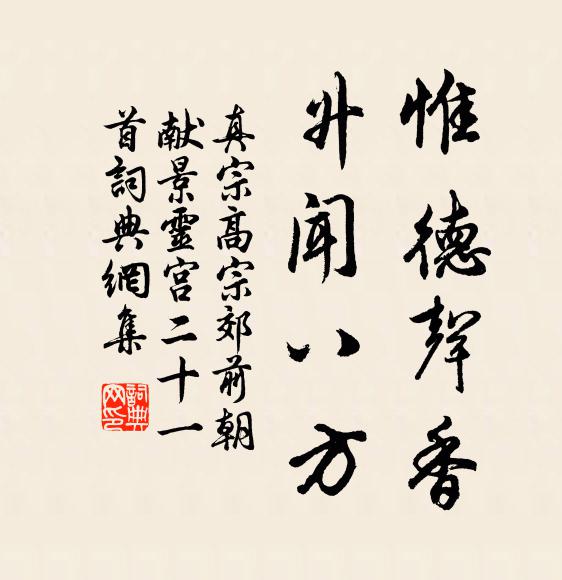 惟德聲香
升聞八方
真宗高宗郊前朝
献景靈宫二十一
首詞典網集
詞典
网印